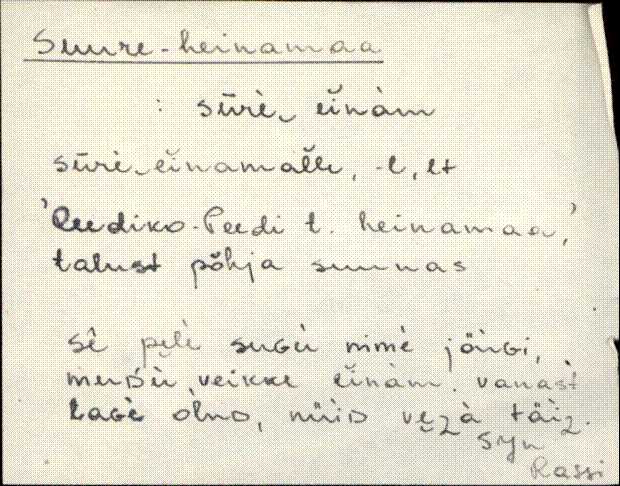 Suure-heinamaa
: sūrè‿ eĭnàm
sūrè‿eĭnamaĺle, -l, lt
'Peediko-Peedi t. heinamaa,'
talust põhja suunas
sê pe̬lè suɢù nimè jä̀rgi,
muᴅù, veikke eĭnàm. vanast
laɢè olnᴅ, nüiᴅ ve̬zà täiz.
Syn
Rassi